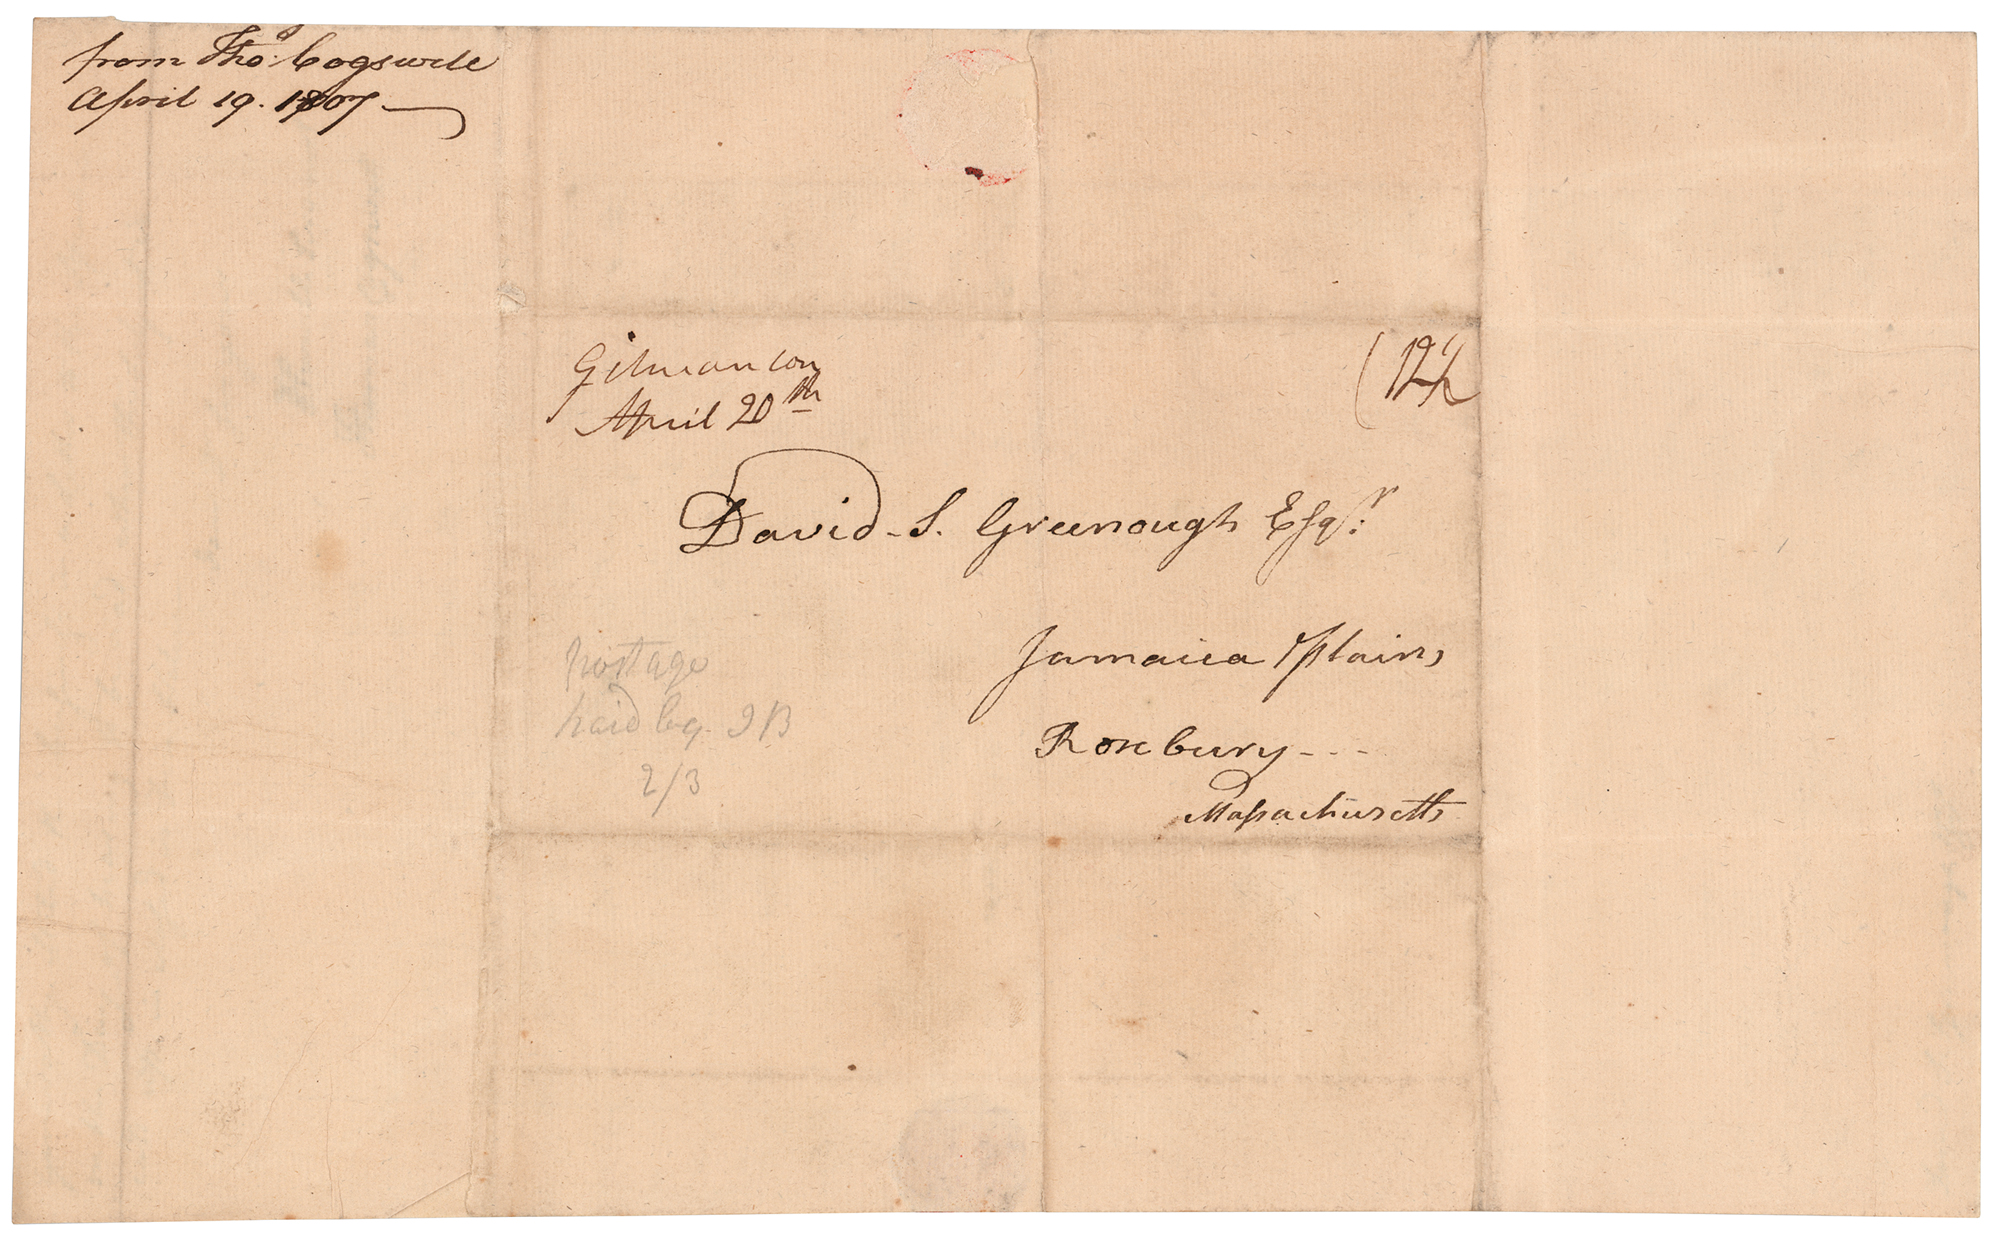 from Tho^s: Cogswell
April 19. 1807
Gilmanton
April 20th
(12½
David S. Greenough Esqr.
Jamaica Plains
Roxbury - - -
Massachusetts
postage
paid by JB
2/3